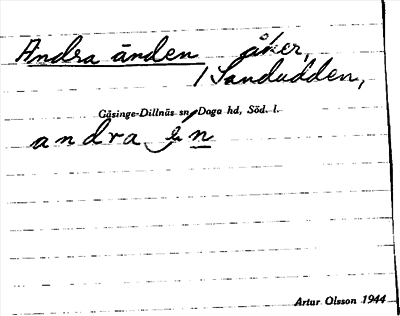 Andra änden åker,
/Sandudden,
Gåsinge-Dillnäs sn, Daga hd, Söd. l.
andra
Artur Olsson 1944